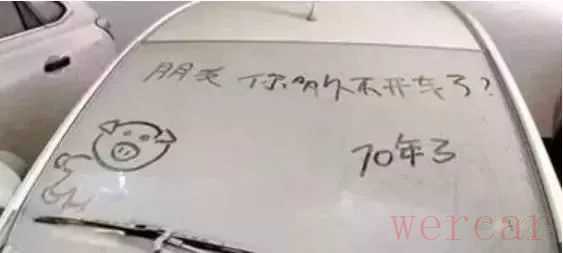 朋友 你多久不开车了?
70年了
wercar